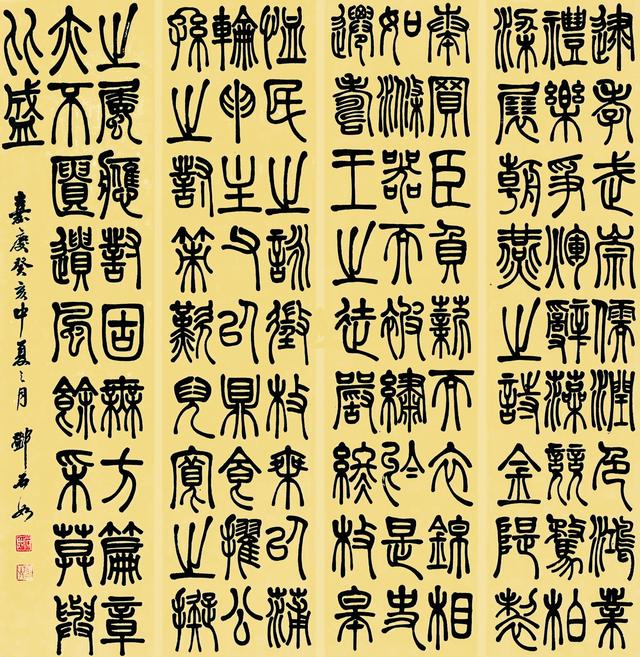 逮孝武崇儒潤色鴻業
禮樂爭輝辭藻競騖柏
梁展朝燕之詩金隄製
奏買臣負薪而衣錦相
如滌器而被繡於是史
遷壽王之徒嚴終枚皋
恤民之詠徵枚乘以蒲
輪申主父以鼎食擢公
孫之對策歎兒寬之擬
之屬應對固無方篇章
亦不匱遺風餘采莫與
比盛
嘉慶癸亥中夏之月 鄧石如